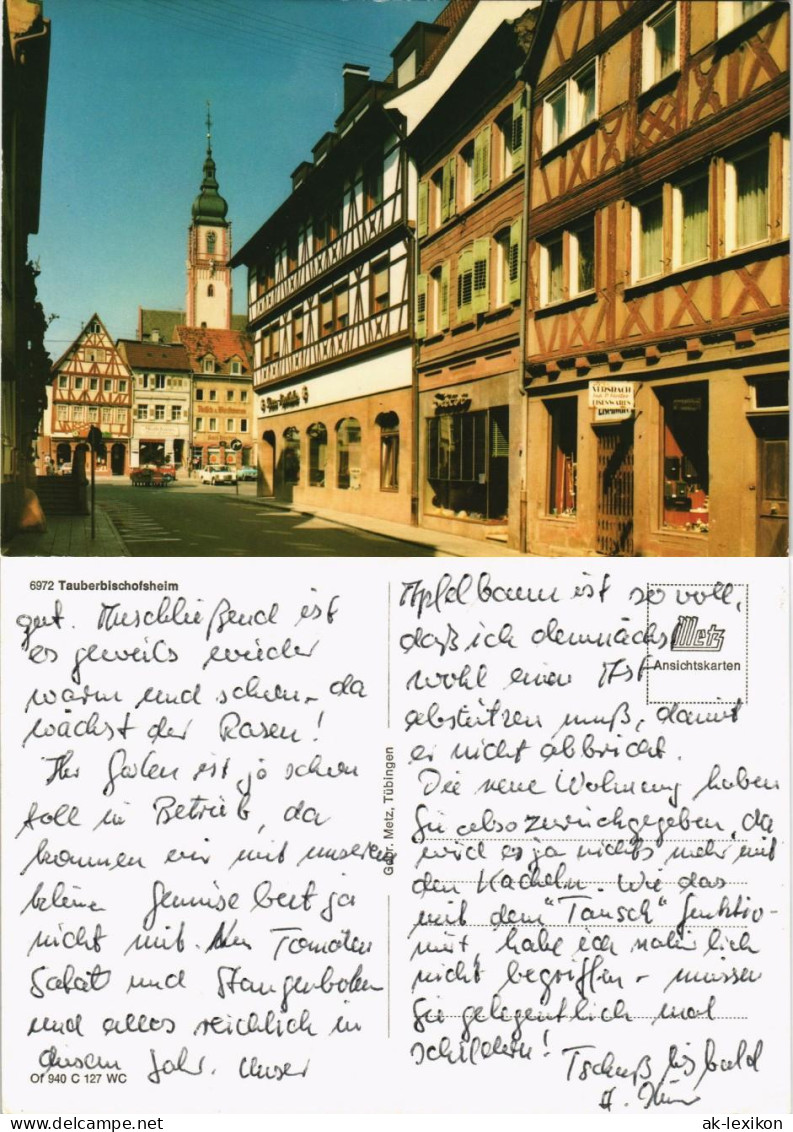 VERSBACH
6972 Tauberbischofsheim
gut. Anschließend ist
es jeweils wieder
warm und schön, da
wächst der Rasen!
Ihr Garten ist ja schon
toll in Betrieb, da
kommen wir mit unserem
kleinen Gemüsebeet ja
nicht mit. Nur Tomaten
Salat und Stangenbohnen
und alles reichlich in
diesem Jahr. Unser
Of 940 C 127 WC
Gebr. Metz, Tübingen
Metz
Ansichtskarten
Apfelbaum ist so voll,
daß ich demnächst
wohl einen Ast
abstützen muß, damit
er nicht abbricht.
Die neue Wohnung haben
Sie also zurückgegeben, da
wird es ja nichts mehr mit
den Kacheln. Wie das
mit dem "Tausch" funktio-
niert, habe ich natürlich
nicht begriffen - müssen
Sie gelegentlich mal
schildern!
Tschüß bis bald
ak-lexikon.com